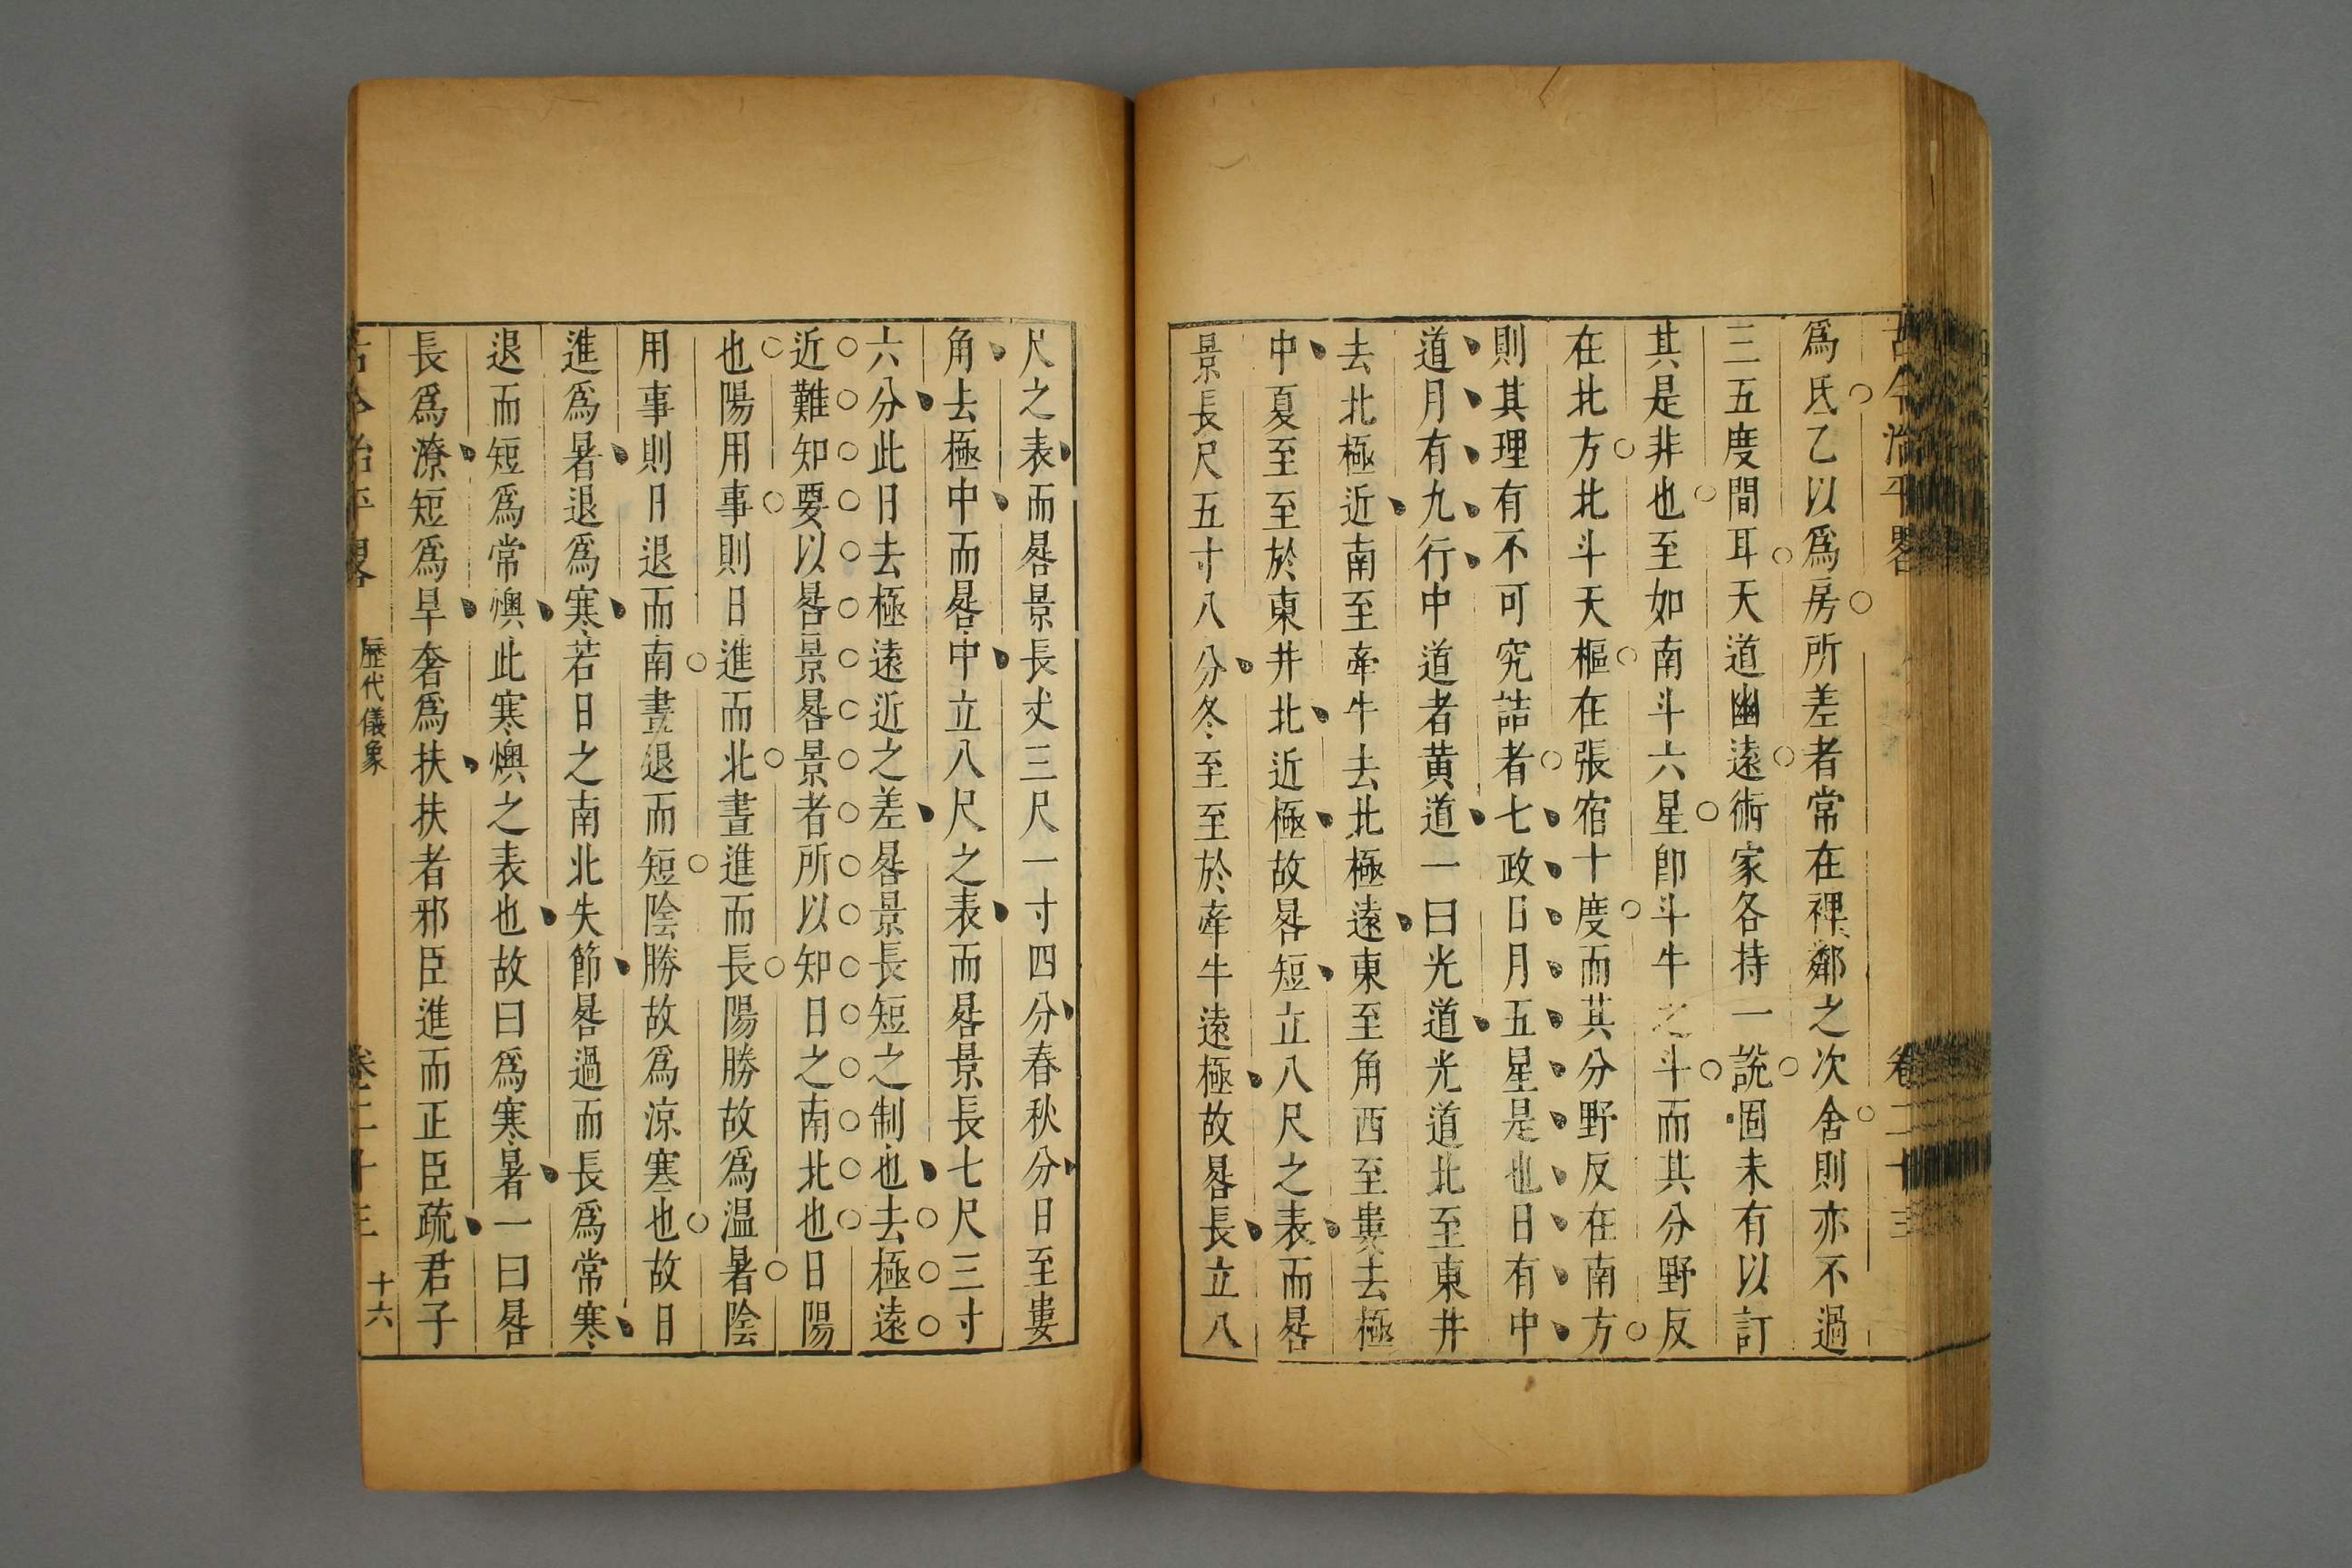 古今治平畧 卷二十三
爲氐乙以爲房所差者常在裨鄰之次舍則亦不過
三五度間耳天道幽遠術家各持一說固未有以訂
其是非也至如南斗六星卽斗牛之斗而其分野反
在北方北斗天樞在張宿十度而其分野反在南方
則其理有不可究詰者七政日月五星是也日有中
道月有九行中道者黄道一曰光道光道北至東井
去北極近南至牽牛去北極遠東至角西至婁去極
中夏至至於東井北近極故晷短立八尺之表而晷
景長尺五寸八分冬至至於牽牛遠極故晷長立八
尺之表而晷景長丈三尺一寸四分春秋分日至婁
角去極中而晷中立八尺之表而晷景長七尺三寸
六分此日去極遠近之差晷景長短之制也去極遠
近難知要以晷景晷景者所以知日之南北也日陽
也陽用事則日進而北晝進而長陽勝故爲温暑陰
用事則日退而南晝退而短陰勝故爲涼寒也故日
進爲暑退爲寒若日之南北失節晷過而長爲常寒
退而短爲常燠此寒燠之表也故曰爲寒暑一曰晷
長爲潦短爲旱奢爲扶扶者邪臣進而正臣疏君子
古今治平畧 歷代儀象 卷二十三 十六